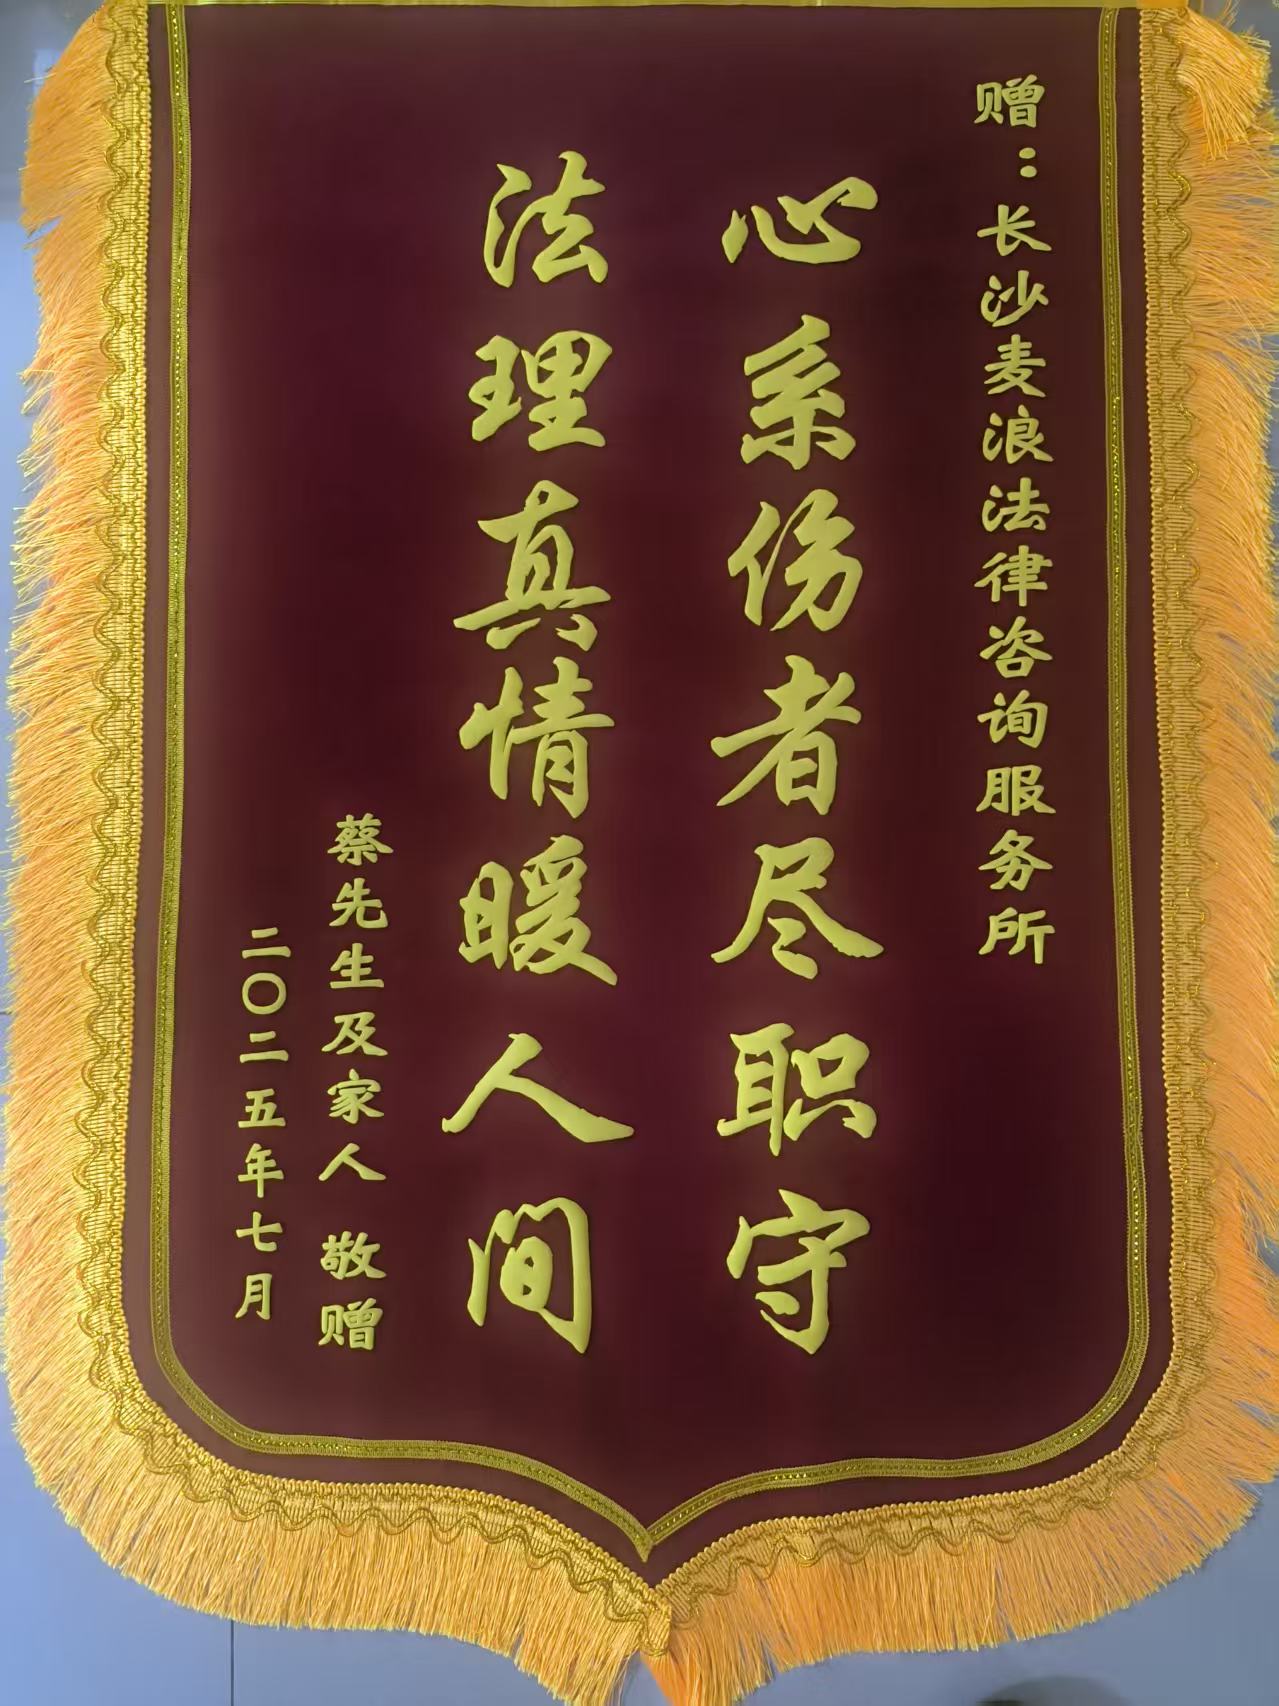 赠：长沙麦浪法律咨询服务所
心系伤者尽职守
法理真情暖人间
蔡先生及家人 敬赠
二〇二五年七月